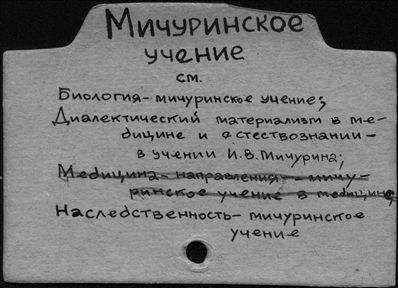 Мичуринское
учение
см.
Биология - мичуринское учение;
Диалектический материализм в ме-
дицине и естествознании -
в учении И.В.Мичурина;
Медицина - направления - мичу-
ринское учение в медицине
Наследственность - мичуринское
учение